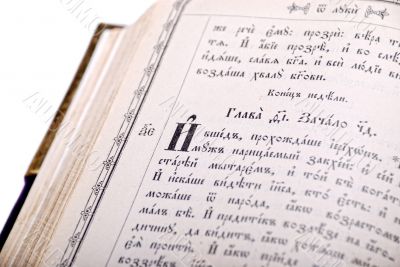 ѿ лꙋкѝ
же речѐ є҆мꙋ̀: прозрѝ: вѣ́ра т
тѧ̀. И҆ а҆́бїе прозрѣ̀, и҆ во слѣ́
и҆дѧ́ше, сла́вѧ бг҃а. и҆ всѝ лю́дїе ви
возда́ша хвалꙋ̀ бг҃ови.
Коне́цъ недѣ́ли.
Глава̀ ѳ҃і. Зача́ло ч҃д.
И҆ вше́дъ, прохожда́ше і҆ерїхѡ́нъ.
мꙋ́жъ нарица́емый закхе́й: и҆ се́й
старѣ́й мытарє́мъ, и҆ то́й бѣ̀ бога́т
И҆ и҆ска́ше ви́дѣти і҆и҃са, кто̀ є҆́сть: и҆
можа́ше ѿ наро́да, ꙗ҆́кѡ во́зрастомъ
ма́лъ бѣ̀. И҆ предите́къ возлѣ́зе на ѧ҆го
дичинꙋ, да ви́дитъ, ꙗ҆́кѡ хотѧ́ше ми́мѡ
є҆ѧ̀ проитѝ. И҆ ꙗ҆́кѡ прїи́де на
воззрѣ́въ